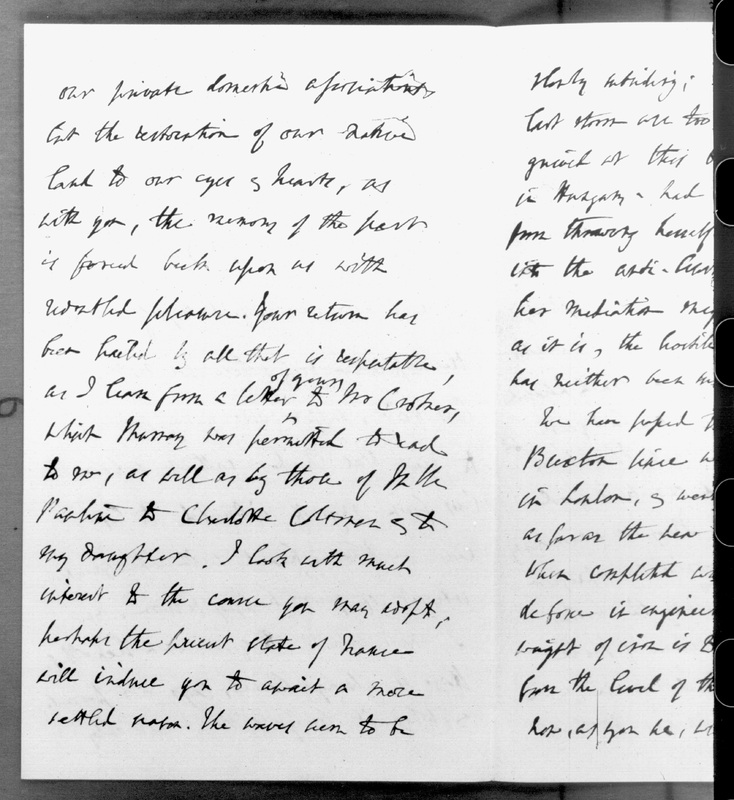 our private domestic associations
but the restoration of our native
land to our eyes & hearts, as
with you, the memory of the past
is forced back upon us with
redoubled pleasure. Your return has
been hailed by all that is respectable,
as I learn from a letter of yours to Mr Croker,
which Murray was permitted to read
to me, as well as by those of Mlle
Pauline to Charlotte Coltman & to
my daughter. I look with much
interest to the course you may adopt,
perhaps the present state of France
will induce you to await a more
settled season. The waves seem to be
slowly subsiding;
last storm are too
grieved at this
in Hungary - had
from throwing herself
into the anti-
her mediation
as it is, the hostile
has neither been
We have passed
Buxton since
in London, & went
as far as the new
when completed
defence in engineer
weight of iron is
from the level of th
now, as you see,